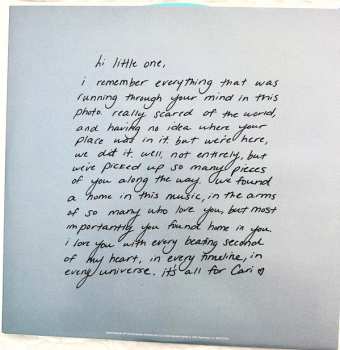 hi little one,
i remember everything that was
running through your mind in this
photo. really scared of the world,
and having no idea where your
place was in it. but we're here,
we did it. well, not entirely, but
we've picked up so many pieces
of you along the way. we found
a home in this music, in the arms
of so many who love you, but most
importantly you found home in you.
i love you with every beating second
of my heart, in every timeline, in
every universe. it's all for Cari